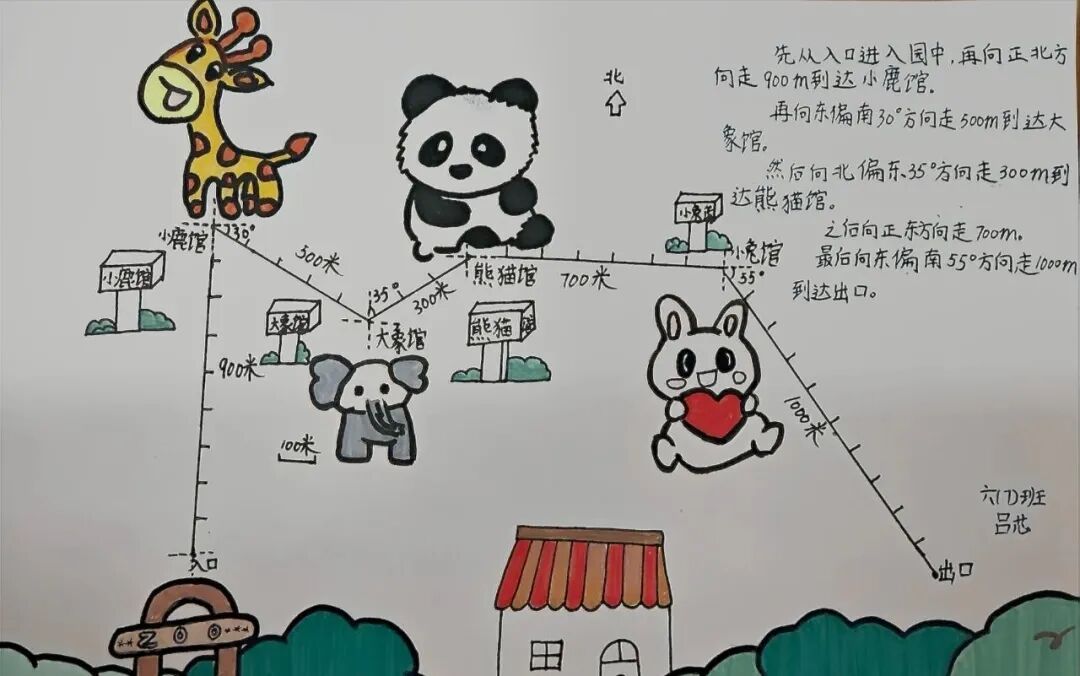 北
先从入口进入园中,再向正北方
向走900m到达小鹿馆.
再向东偏南30°方向走500m到达大
象馆。
然后向北偏东35°方向走300m到
达熊猫馆。
之后向正东方向走700m。
最后向东偏南55°方向走1000m
到达出口。
小鹿馆
30°
500米
小鹿馆
大象馆
35°
300米
大象馆
熊猫馆
熊猫馆
700米
小兔馆
小兔馆
55°
900米
100米
1000米
六(7)班
吕芯
入口
出口
ZOO